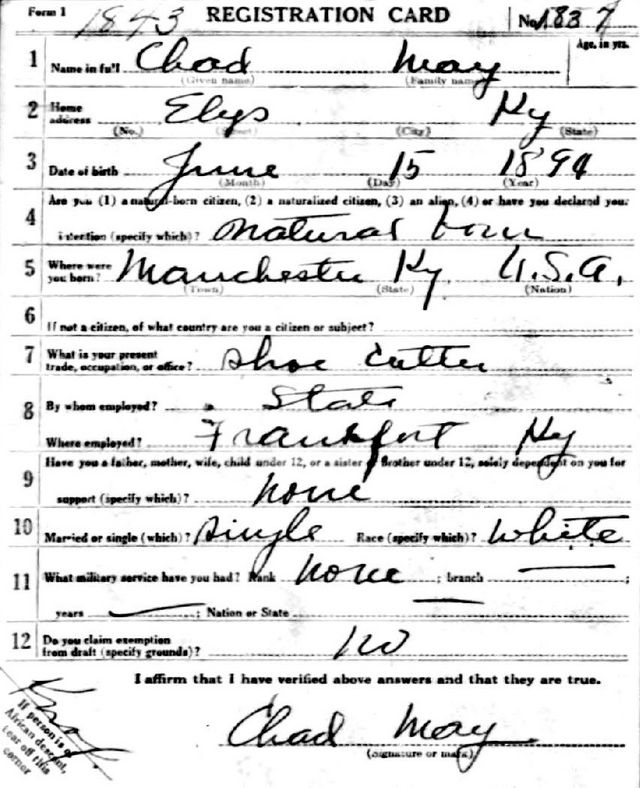 Form 1 1843 REGISTRATION CARD No. 1837
Age, in yrs.
1 Name in full Chad May
(Given name) (Family name)
2 Home address Elys Ky
(No.) (Street) (City) (State)
3 Date of birth June 15 1894
(Month) (Day) (Year)
4 Are you (1) a natural-born citizen, (2) a naturalized citizen, (3) an alien, (4) or have you declared your
intention (specify which)? Natural born
5 Where were you born? Manchester Ky U.S.A.
(Town) (State) (Nation)
6 If not a citizen, of what country are you a citizen or subject?
7 What is your present
trade, occupation, or office? Shoe Cutter
8 By whom employed? State
Where employed? Frankfort Ky
9 Have you a father, mother, wife, child under 12, or a sister or brother under 12, solely dependent on you for
support (specify which)? None
10 Married or single (which)? Single Race (specify which)? White
11 What military service have you had? Rank None ; branch ;
years ; Nation or State
12 Do you claim exemption
from draft (specify grounds)? No
I affirm that I have verified above answers and that they are true.
Chad May
(Signature or mark)
If person is of
African descent,
tear off this
corner